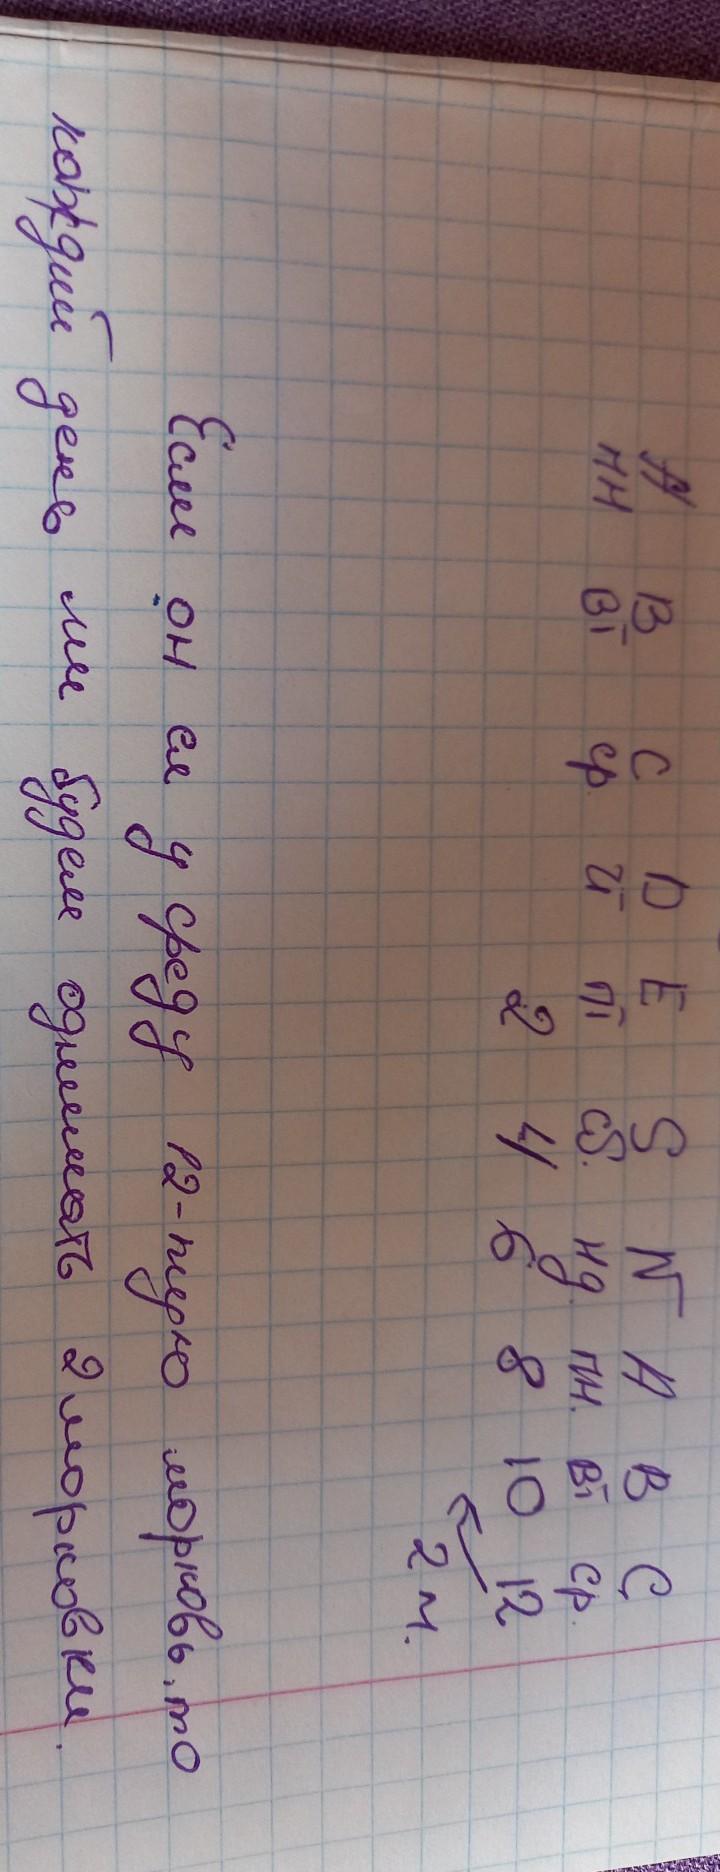 A B C D E S N A B C
пн Вт ср. чт пт сб. нд. пн. вт ср.
2 4 6 8 10 12
2 м.
Если он ел у среду 12-тую морковь, то
каждий день ми будем однимать 2 морковки.